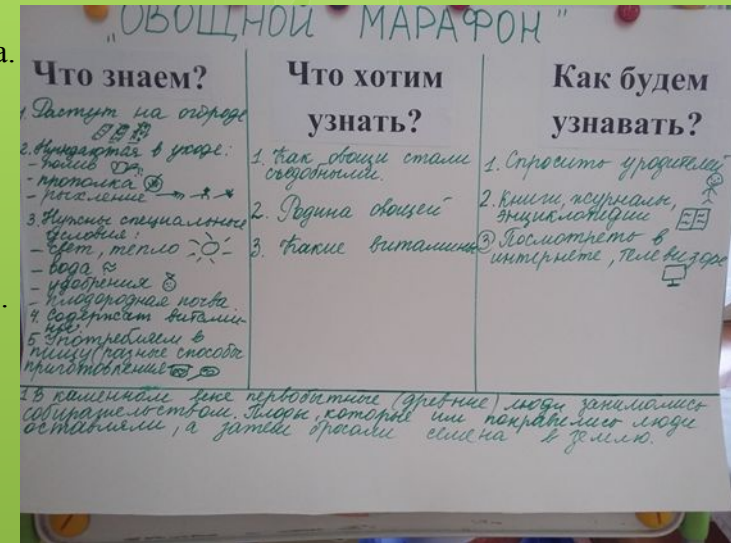 а.
.
„ОВОЩНОЙ МАРАФОН"
Что знаем?
1. Растут на огороде
2. Нуждаются в уходе:
- полив
- прополка
- рыхление
3. Нужны специальные
условия:
- свет, тепло
- вода
- удобрения
- плодородная почва
4. Содержат витами-
ны.
5. Употребляем в
пищу (разные способы
приготовления
Что хотим
узнать?
1. Как овощи стали
съедобными.
2. Родина овощей
3. Какие витамины
Как будем
узнавать?
1. Спросить у родителей
2. Книги, журналы,
энциклопедии
3 Посмотреть в
интернете, телевизоре
1 В каменном веке первобытные (древние) люди занимались
собирательством. Плоды, которые им понравились люди
оставляли, а затем бросали семена в землю.